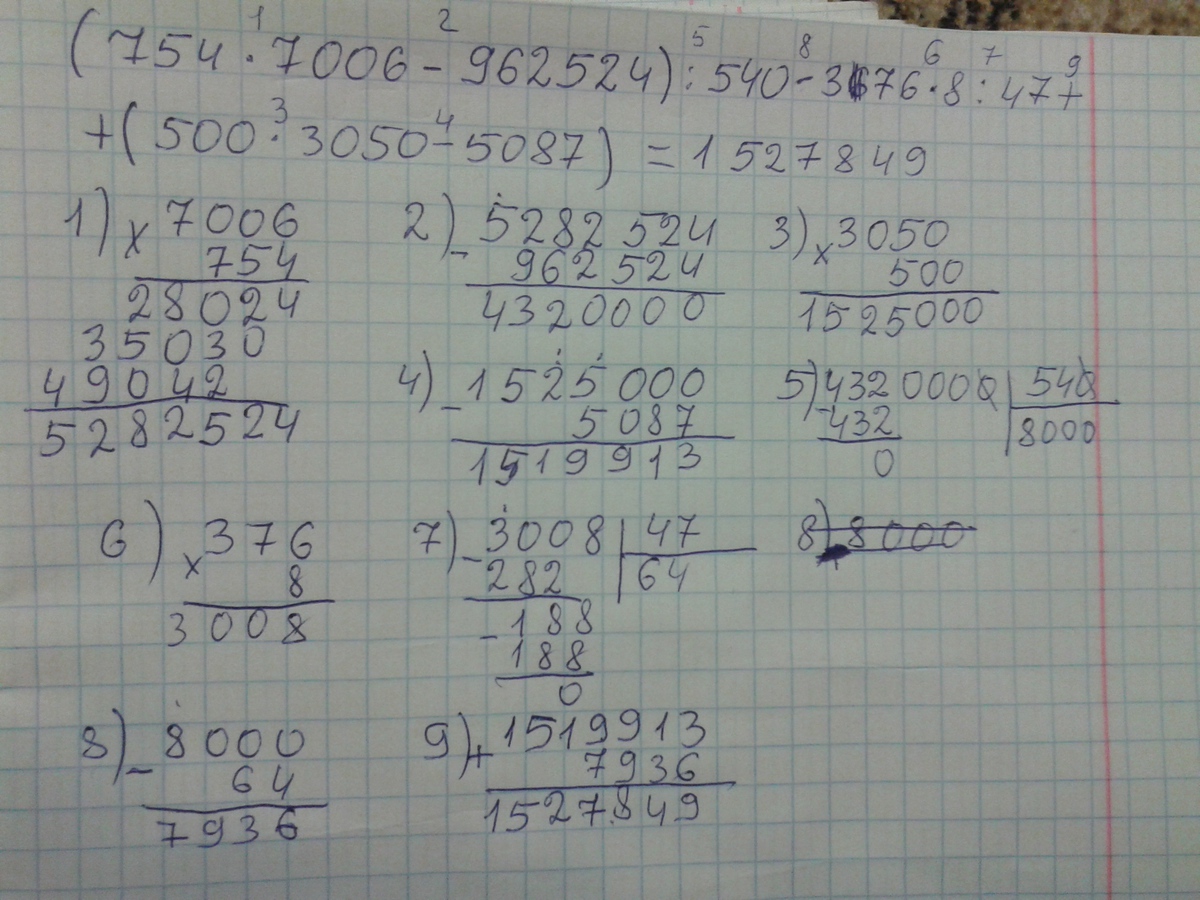 (754 · 7006 - 962524) : 540 - 376 · 8 : 47 +
1 2 5 8 6 7 9
+ (500 · 3050 - 5087) = 1527849
3 4
1) x 7006
754
28024
35030
49042
5282524
2) - 5282524
962524
4320000
3) x 3050
500
1525000
4) - 1525000
5087
1519913
5) 4320000 | 540
- 432 | 8000
0
6) x 376
8
3008
7) - 3008 | 47
282 | 64
- 188
188
0
8) 8000
8) - 8000
64
7936
9) + 1519913
7936
1527849